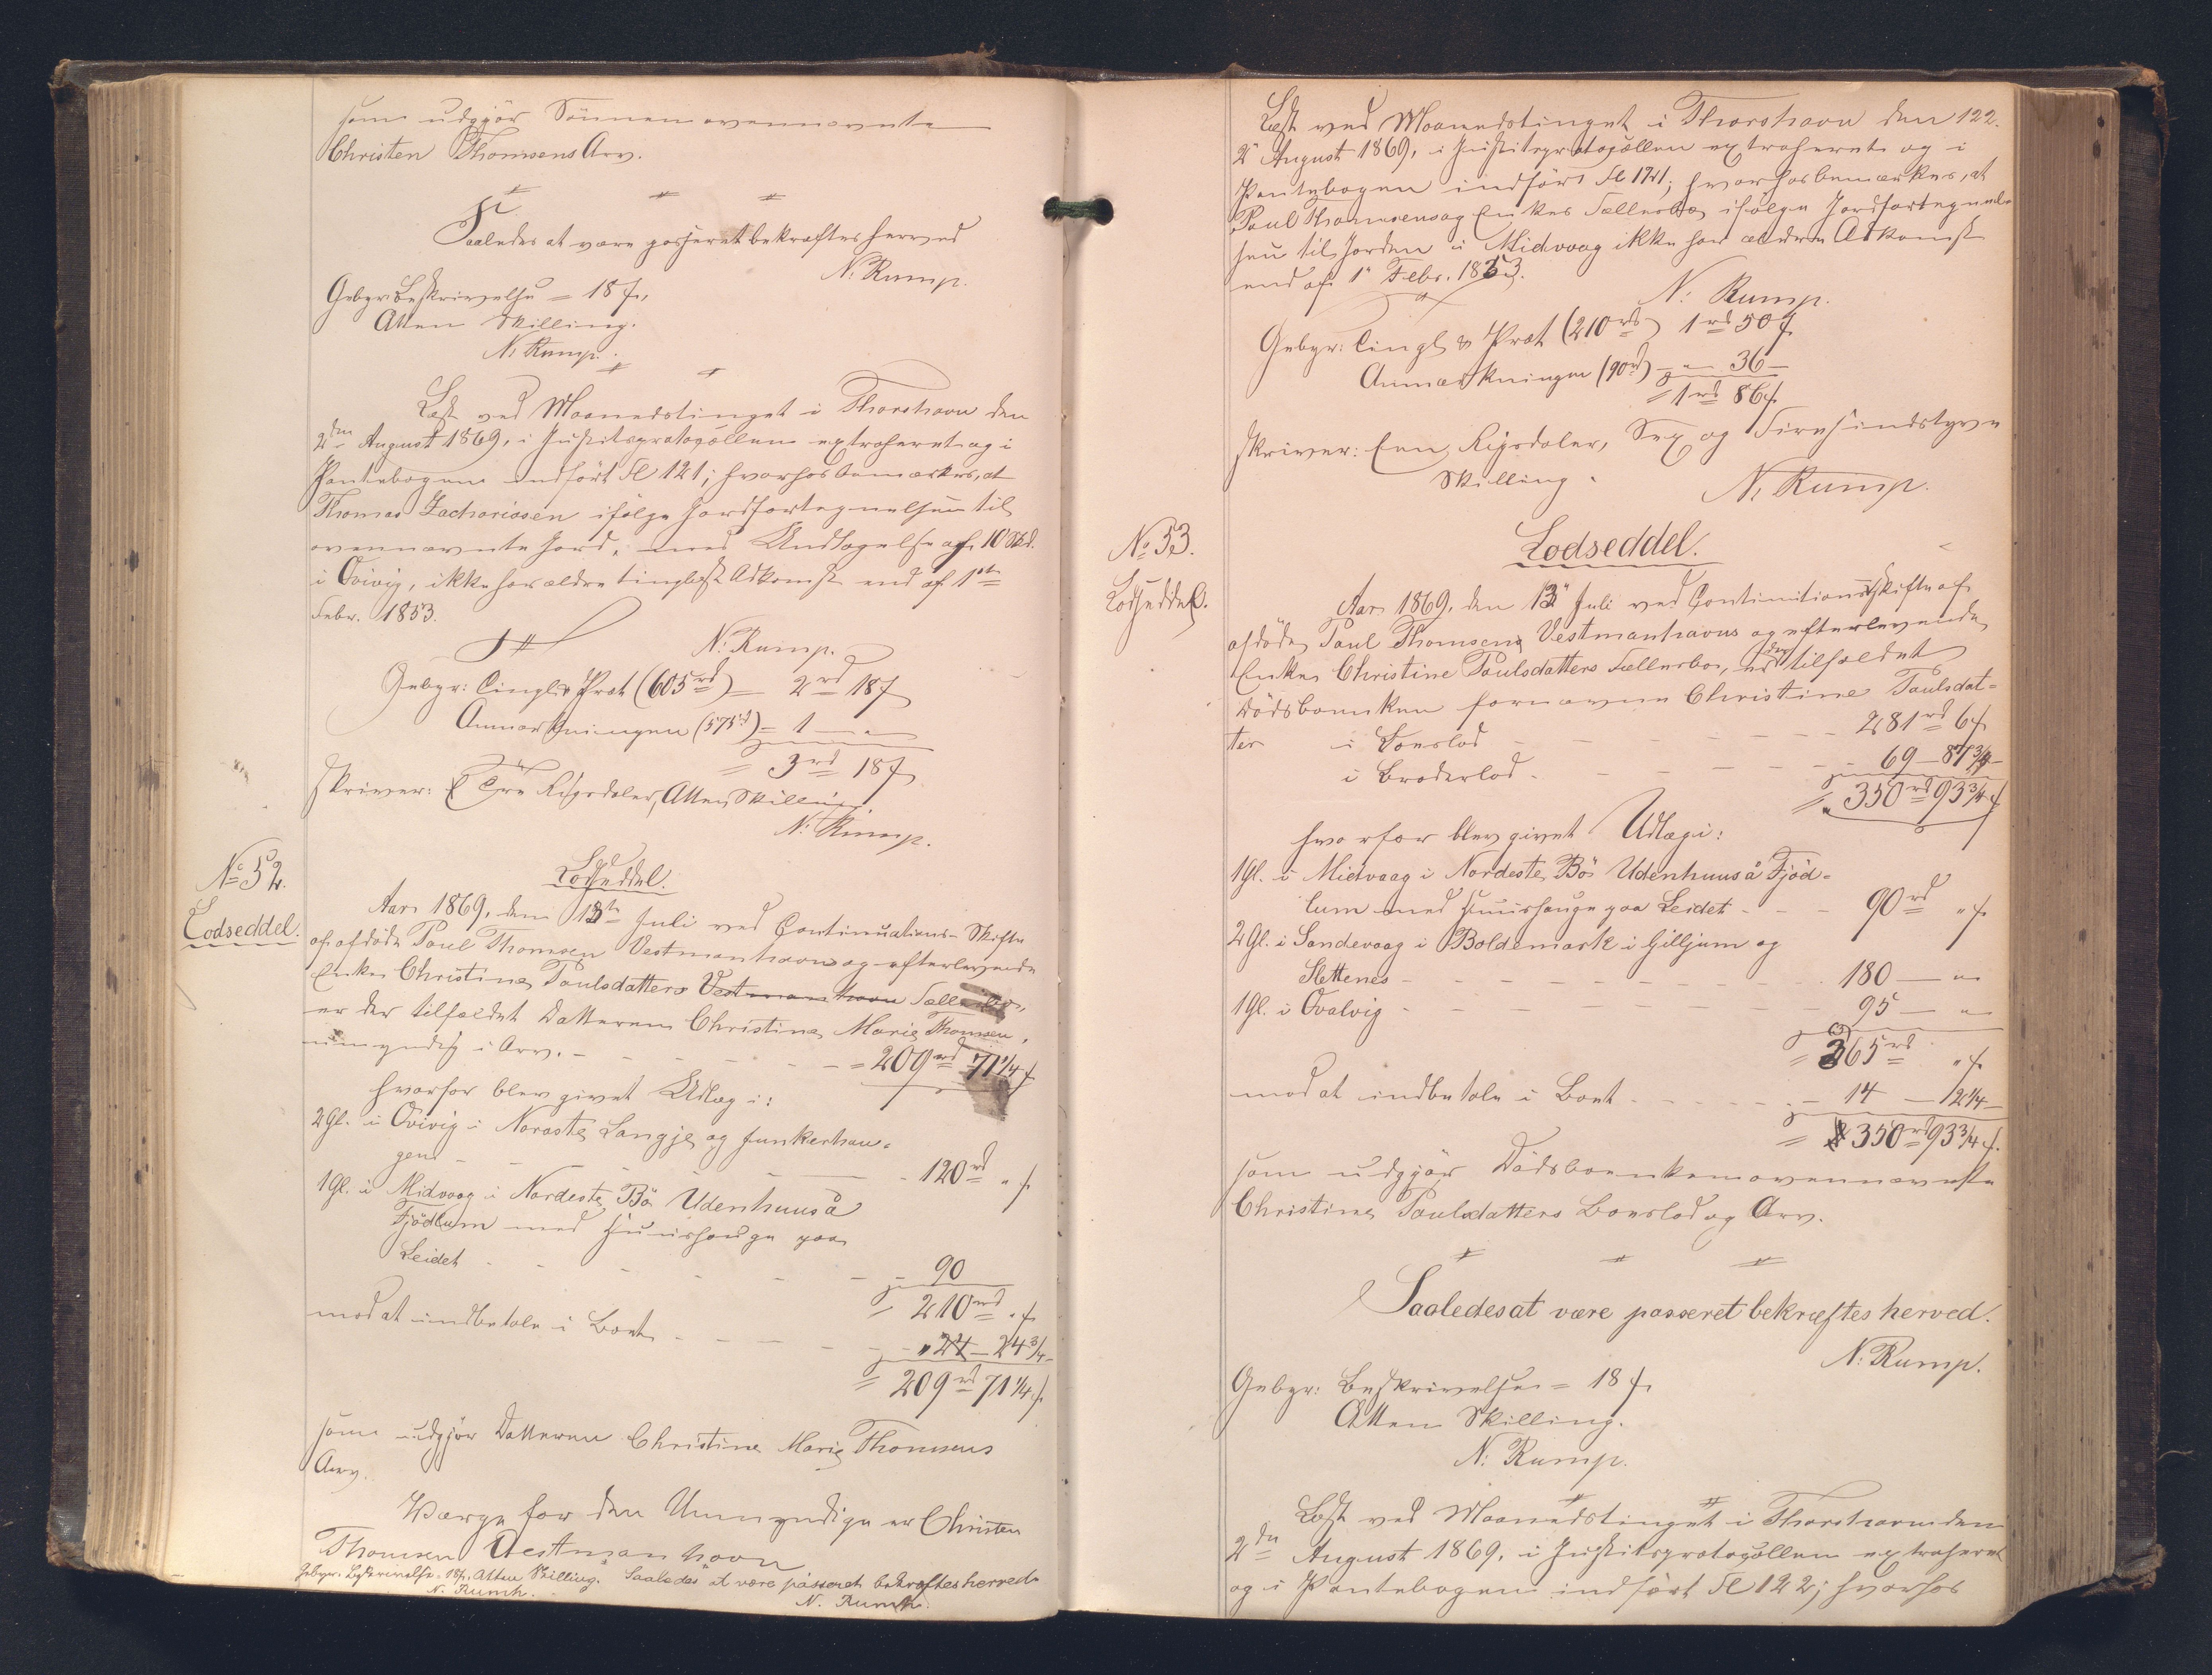 som udgjør Sønnen ovennævnte
Christen Thomsens Arv.
Saaledes at være passeret bekræftes herved
N: Rump.
Gebyr: Beskrivelse = 18 ſ.
Atten Skilling.
N. Rump.
Læst ved Maanedstinget i Thorshavn den
2den August 1869, i Justitsprotocollen extraheret og i
Pantebogen indført Fl 121; hvorhos bemærkes, at
Thomas Zachariasen ifølge Jordfortegnelsen til
ovennævnte Jord, med Undtagelse af 10 Skd.
i Qvivig, ikke har ældre tinglæst Adkomst end af 1ste
Febr. 1853.
N. Rump.
Gebyr: Tingl & Prot (605 rd) = 2 rd 18 ſ
Anmærkningen (575 rd) = 1 — "
= 3 rd 18 ſ
skriver: Tre Rigsdaler, Atten Skilling.
N. Rump.
No 52.
Lodseddel.
Lodseddel.
Aar 1869, den 13te Juli ved Continuations-Skifte
af afdøde Poul Thomsen Vestmanhavn og efterlevende
Enke Christine Poulsdatters Vestmanhavn Fællesbo,
er der tilfaldet Datteren Christine Marie Thomsen,
umyndig i Arv. - - - = 209 rd 71 1/4 ſ
hvorfor blev givet Udlæg i:
2 Gl. i Qvivig i Noraste Langje og Junkerhau=
gend - - - 120 rd " ſ
1 Gl. i Midvaag i Nordeste Bø Udenhuus å
Fjødlum med Huushauge paa
Leidet - - - 90
= 210 rd " ſ
mod at indbetale i Boet - - - 24 3/4
= 209 rd 71 1/4 ſ.
som udgjør Datteren Christine Marie Thomsens
Arv.
Værge for den Umyndige er Christen
Thomsen Vestmanhavn
Gebyr. Beskrivelse = 18 ſ. Atten Skilling. Saaledes at være passeret bekræftes herved.
N. Rump. N. Rump.
122.
Læst ved Maanedstinget i Thorshavn den
2' August 1869, i Justitsprotocollen extraheret og i
Pantebogen indført Fl 121; hvorhos bemærkes, at
Poul Thomsens og Enkes Fællesbo ifølge Jordfortegnel=
sen til Jorden i Midvaag ikke har ældre Adkomst
end af 1' Febr. 1853.
N: Rump.
Gebyr: Tingl & Prot (210 rd) 1 rd 50 ſ
Anmærkningen (90 rd) - " - 36 —
= 1 rd 86 ſ.
skriver: Een Rigsdaler, Sex og Firesindstyve
Skilling.
N. Rump.
No 53.
Lodseddel.
Lodseddel.
Aar 1869, den 13' Juli ved Continuationsskifte af
afdøde Poul Thomsens Vestmanhavns og efterlevende
Enke Christine Poulsdatters Fællesbo, er der tilfaldet
Dødsboenken fornævnte Christine Poulsdat=
ter i Boeslod - - - 281 rd 6 ſ.
i Broderlod - - - 69 — 87 3/4 —
= 350 rd 93 3/4 ſ
hvorfor blev givet Udlæg i:
1 Gl. i Midvaag i Nordeste Bø Udenhuus å Fjød=
lum med Huushauge paa Leidet - - - 90 rd " ſ
2 Gl. i Sandevaag i Boldemark i Gilljum og
Slettenes - - - 180 — "
1 Gl. i Qvalvig - - - 95 — "
= 365 rd " ſ.
mod at indbetale i Boet - - - 14 — 2 1/4 —
= 350 rd 93 3/4 ſ.
som udgjør Dødsboenken ovennævnte
Christine Poulsdatters Boeslod og Arv.
Saaledes at være passeret bekræftes herved.
N: Rump.
Gebyr: Beskrivelse = 18 ſ.
Atten Skilling.
N: Rump.
Læst ved Maanedstinget i Thorshavn den
2den August 1869, i Justitsprotocollen extraheret
og i Pantebogen indført Fl 122; hvorhos